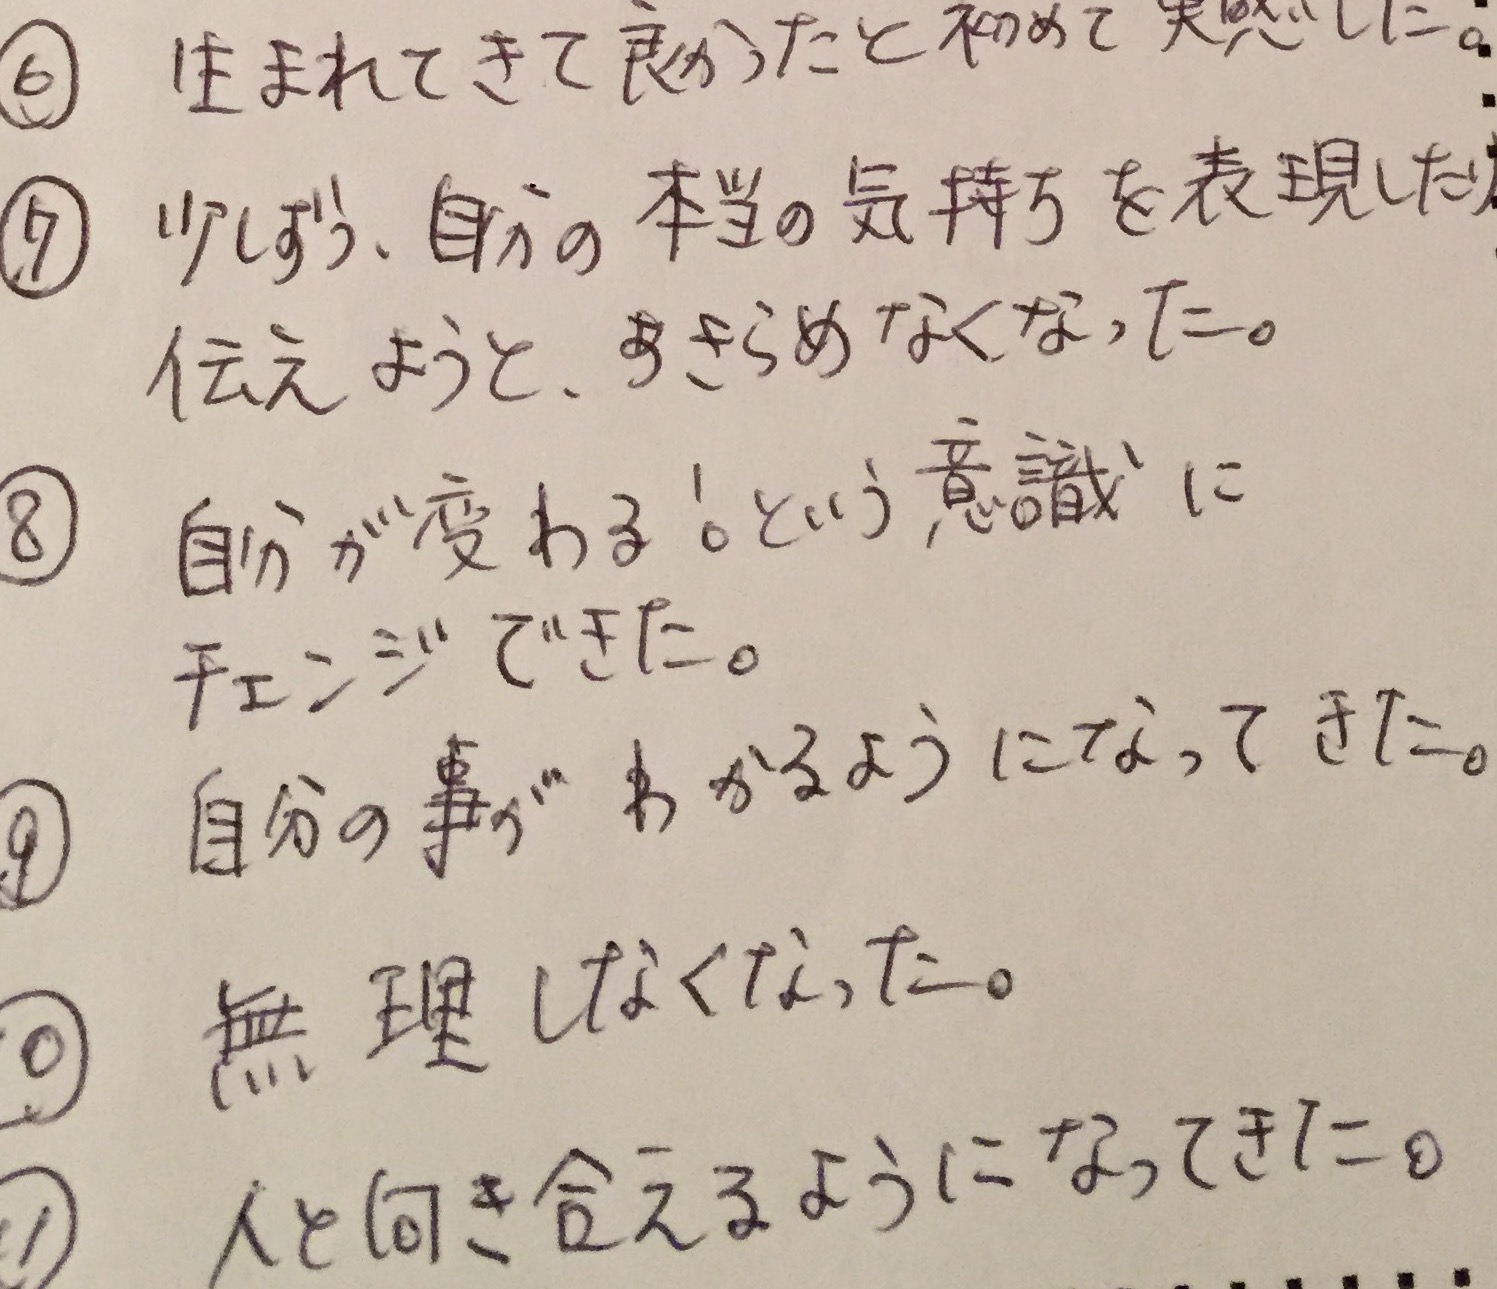 ⑥ 生まれてきて良かったと初めて実感した。
⑦ 少しずつ、自分の本当の気持ちを表現したり
伝えようと、あきらめなくなった。
⑧ 自分が変わる!という意識に
チェンジできた。
⑨ 自分の事がわかるようになってきた。
⑩ 無理しなくなった。
⑪ 人と向き合えるようになってきた。